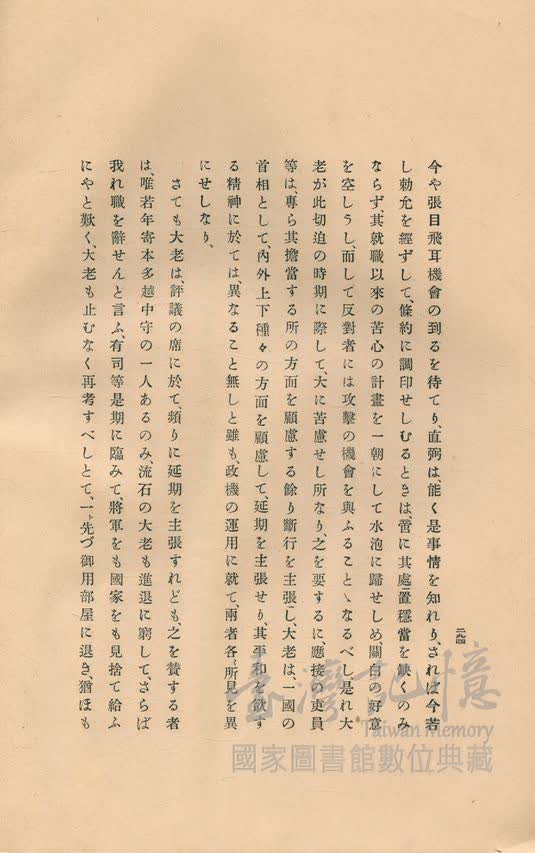 二九四
今や張目飛耳機會の到るを待てり、直弼は、能く是事情を知れり、されば今若
し勅允を經ずして、條約に調印せしむるときは、啻に其處置穩當を缺くのみ
ならず其就職以來の苦心の計畫を一朝にして水泡に歸せしめ、關白の好意
を空しうし、而して反對者には攻擊の機會を與ふることゝなるべし是れ大
老が此切迫の時期に際して、大に苦慮せし所なり、之を要するに、應接の吏員
等は、專ら其擔當する所の方面を顧慮する餘り斷行を主張し、大老は、一國の
首相として、內外上下種々の方面を顧慮して、延期を主張せり、其平和を欲す
る精神に於ては、異なること無しと雖も、政機の運用に就て、兩者各〻所見を異
にせしなり、
さても大老は、評議の席に於て、頻りに延期を主張すれども、之を賛する者
は、唯若年寄本多越中守の一人あるのみ、流石の大老も進退に窮して、さらば
我れ職を辭せんと言ふ、有司等是期に臨みて、將軍をも國家をも見捨て給ふ
にやと歎く、大老も止むなく再考すべしとて、一ト先づ御用部屋に退き、猶ほも
臺灣記憶
Taiwan Memory
國家圖書館數位典藏